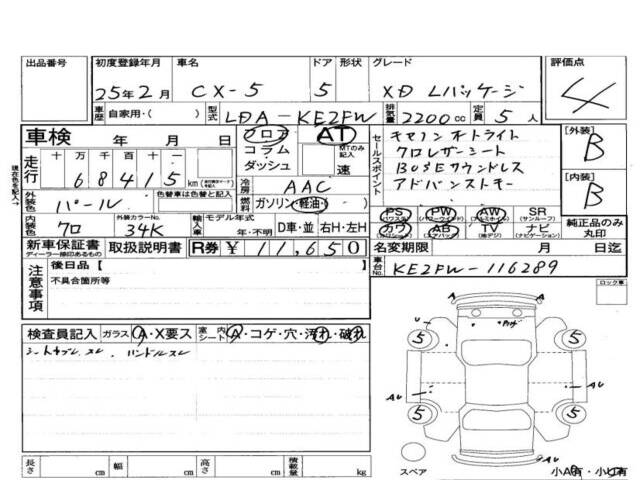 出品番号
初度登録年月
25年2月
車名
CX-5
ドア
5
形状
グレード
XD Lパッケージ
評価点
4
車歴
自家用・( )
型式
LDA-KE2FW
排気量
2200cc
定員
5人
車検
年 月 日
フロア
コラム
ダッシュ
AT
MTのみ記入
速
走行
十 万 千 百 十 一
68415
km
現在色を記入→
外装色
パール
色替車は色替色
冷房
AAC
ガソリン・軽油・( )
内装色
クロ
外装カラーNo.
34K
輸入車
モデル年式
年・不明
D車・並
右H・左H
新車保証書
ディーラー捺印あるもの
取扱説明書
R券 ¥11,650
セールスポイント
キセノンオートライト
クロレザーシート
BOSEサウンドレス
アドバンストキー
PS PW AW SR (サンルーフ)
カワ AB TV ナビ (ナビゲーション)
[外装]
B
[内装]
B
純正品のみ丸印
名変期限
月 日迄
車台No.
KE2FW-116289
注意事項
後日品【 】
不具合箇所等
ロック車
検査員記入
ガラス A・X要ス
室内シート A・コゲ・穴・汚れ・破れ
ハンドルスレ
A A
U
5 5
AU AU
5 5
AU
スペア
小A有・小U有
長さ cm
幅 cm
高さ cm
積載量 kg